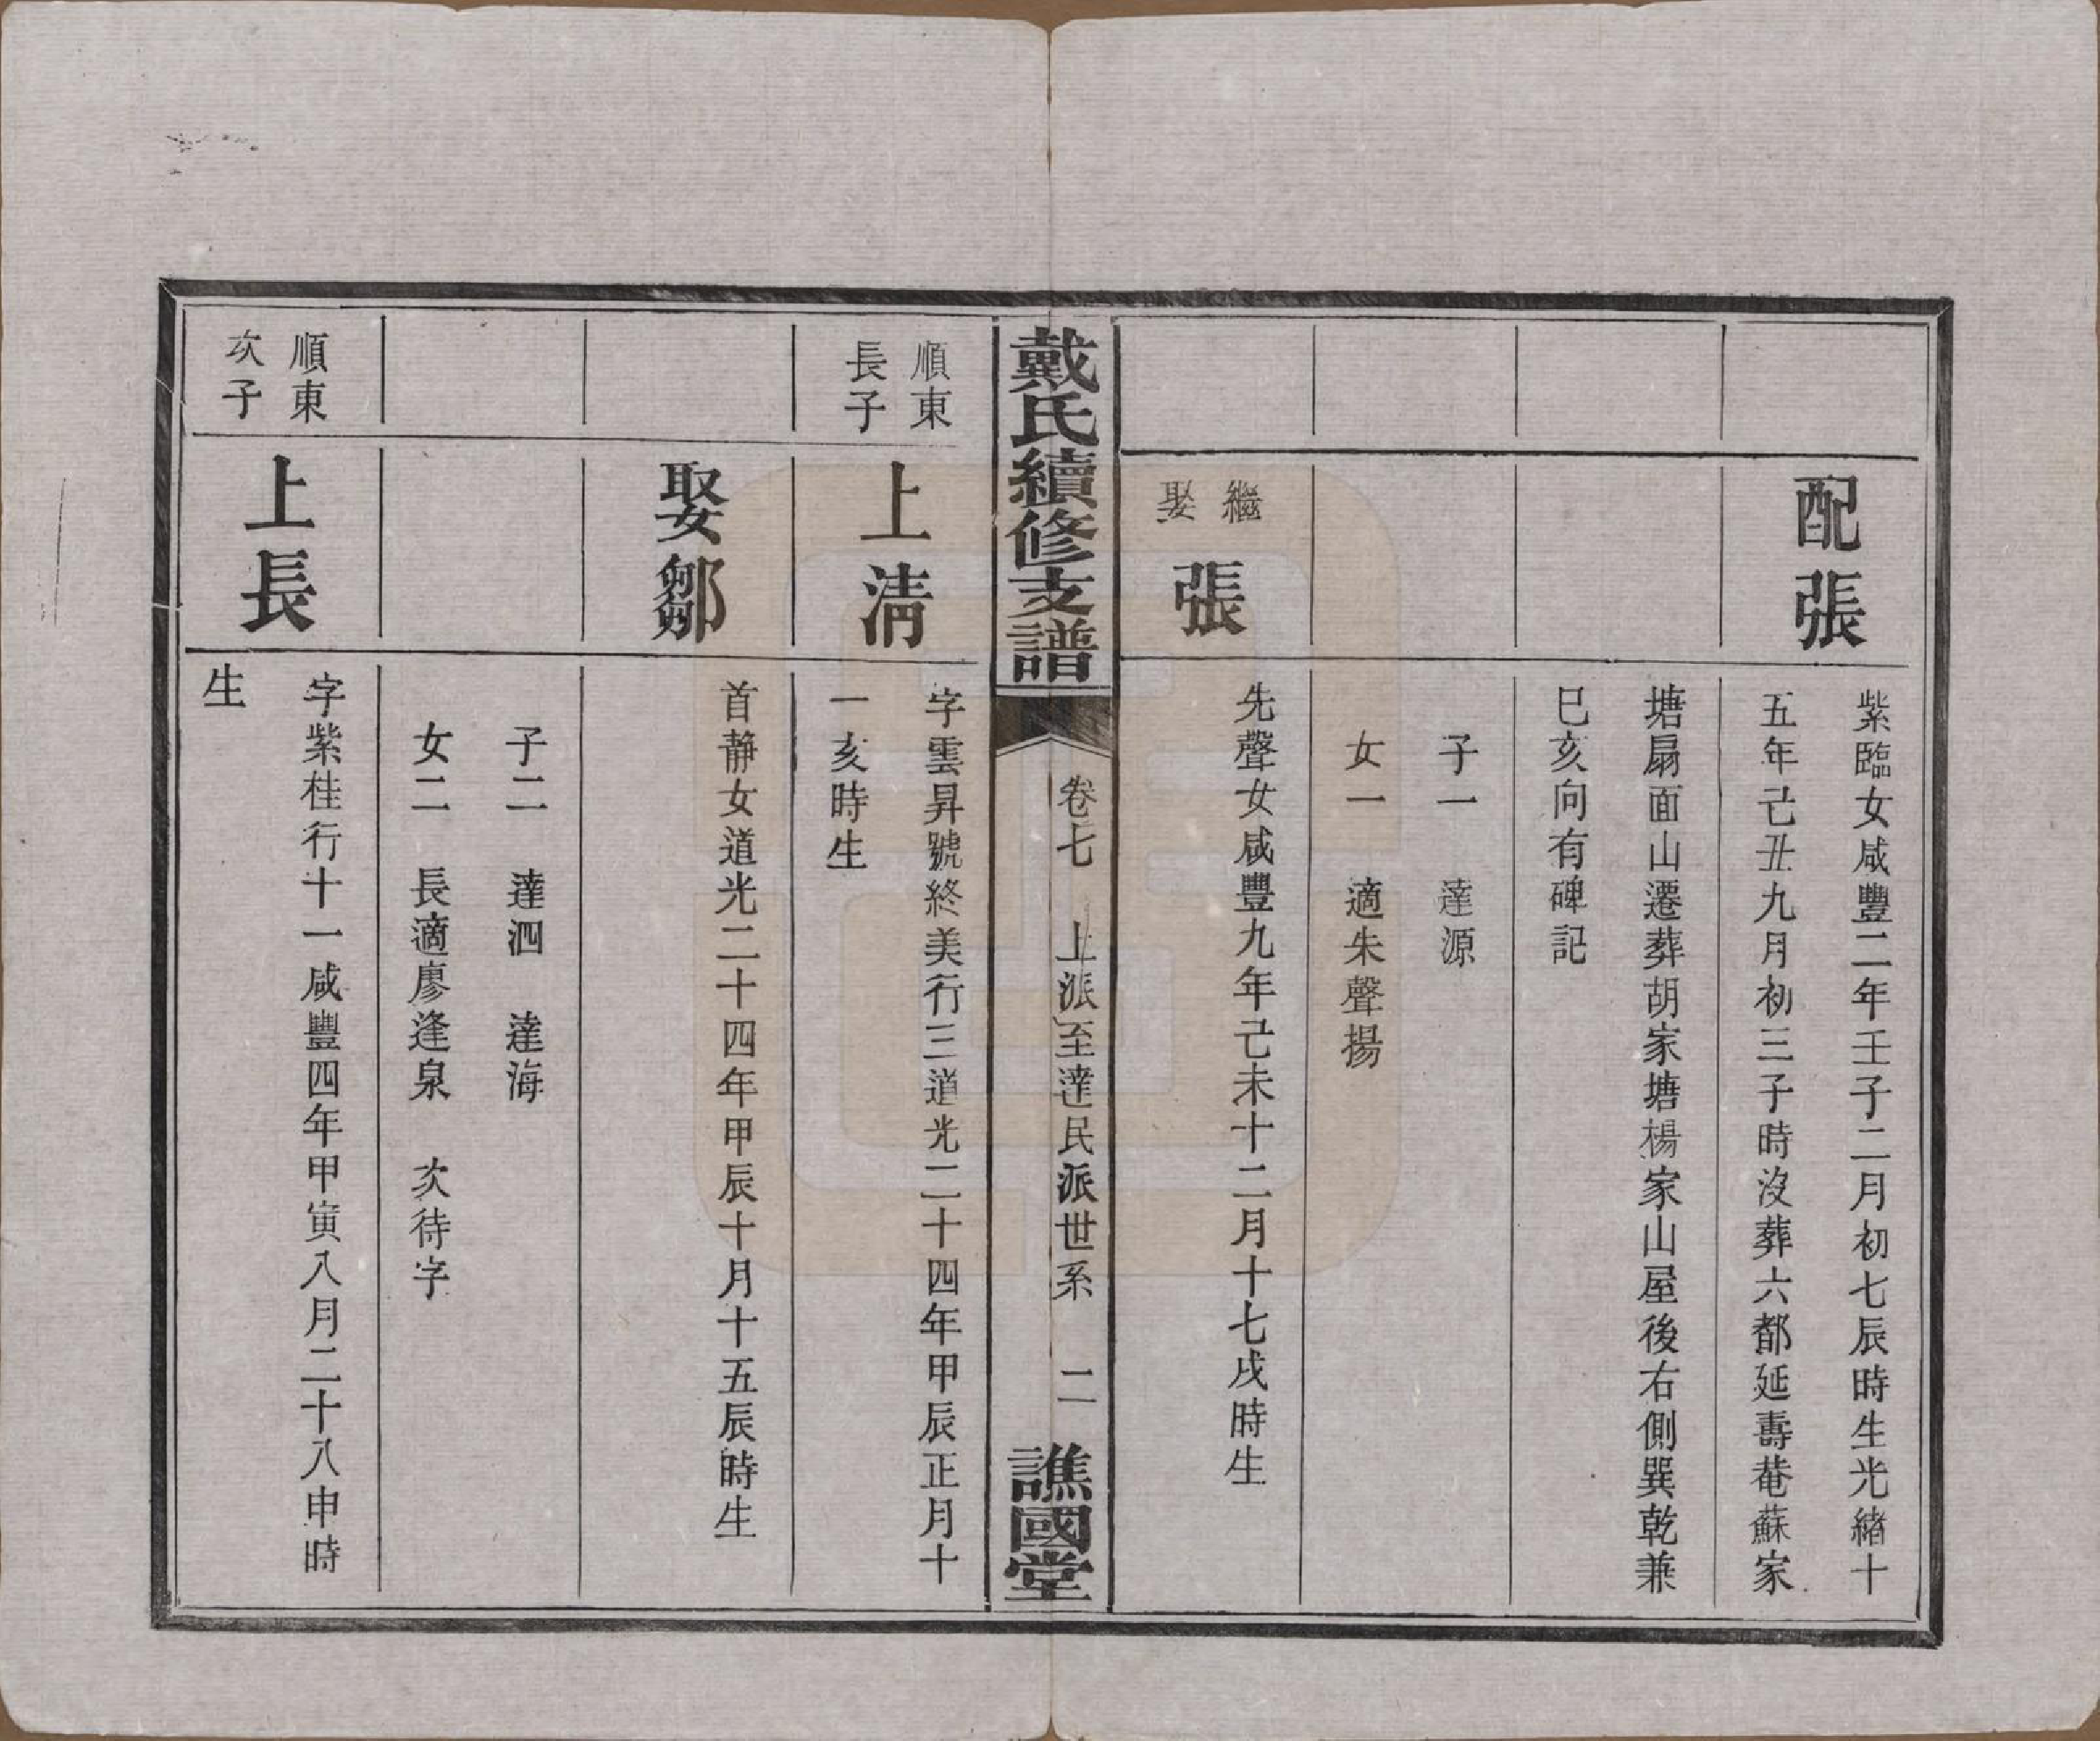 配張
紫臨女咸豐二年壬子二月初七辰時生光緒十
五年己丑九月初三子時沒葬六都延壽菴蘇家
塘扇面山遷葬胡家塘楊家山屋後右側巽乾兼
巳亥向有碑記
子一　達源
女一　適朱聲揚
繼娶
張
先聲女咸豐九年己未十二月十七戌時生
戴氏續修支譜
卷七　上派至達民派世系　二
譙國堂
順東
長子
上清
字雲昇號終美行三道光二十四年甲辰正月十
一亥時生
娶鄒
首靜女道光二十四年甲辰十月十五辰時生
子二　達泗　達海
女二　長適廖逢泉　次待字
順東
次子
上長
字紫桂行十一咸豐四年甲寅八月二十八申時
生